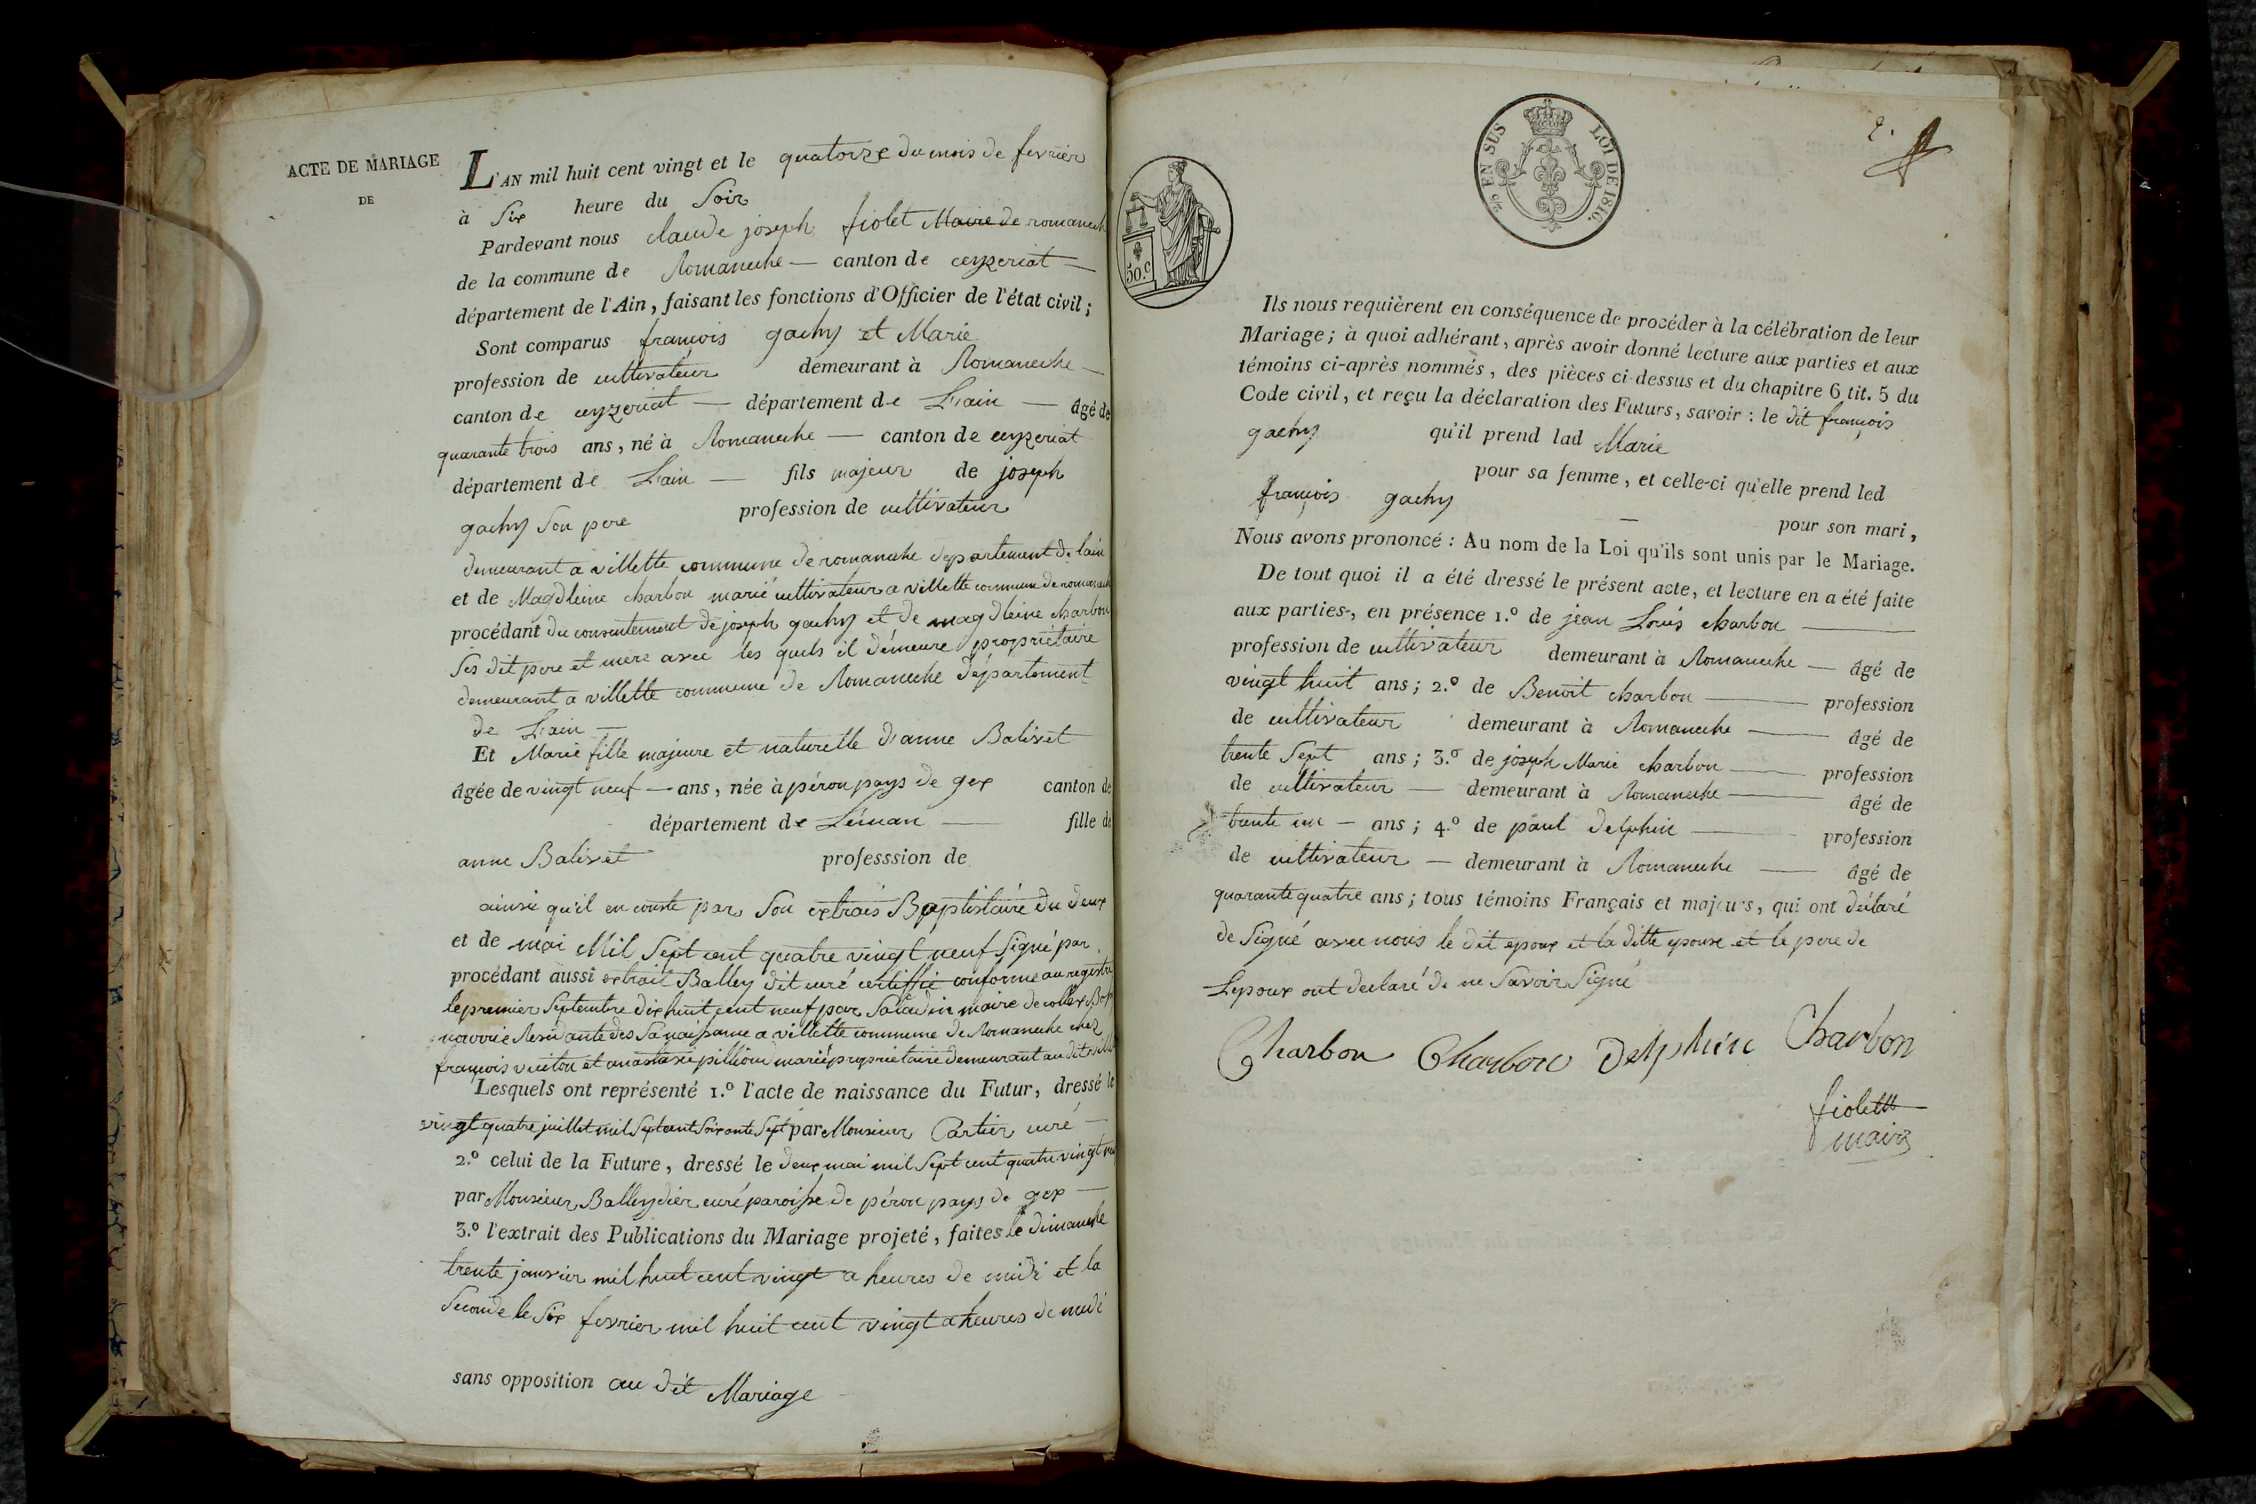 ACTE DE MARIAGE
DE
L'AN mil huit cent vingt et le quatorze du mois de fevrier
à Six heure du Soir
Pardevant nous claude joseph fiolet Maire de romaneche
de la commune de Romaneche — canton de ceyzeriat —
département de l'Ain, faisant les fonctions d'Officier de l'état civil;
Sont comparus françois gachy et Marie
profession de cultivateur demeurant à Romaneche —
canton de ceyzeriat — département de L'ain — âgé de
quarante trois ans, né à Romaneche — canton de ceyzeriat
département de L'ain — fils majeur de joseph
gachy Son pere profession de cultivateur
demeurant a villette commune de romaneche departement de lain
et de Magdleine charbon marié cultivateur a villette commune de romaneche
procédant du consentement de joseph gachy et de magdleine charbon
Ses dit pere et mere avec les quels il démeure propriétaire
demeurant a villette commune de Romaneche département
de L'ain —
Et Marie fille majeure et naturelle d'anne Balivet
âgée de vingt neuf — ans, née à péron pays de gex canton de
département de Léman — fille de
anne Balivet professsion de
ainsi qu'il en conste par Son extrais Baptistaire du deux
et de mai Mil Sept cent quatre vingt neuf Signé par
procédant aussi extrait Balley dit curé certiffié conforme au registre
le premier Septembre dix huit cent neuf par Saladin maire de collex Bossy
nourrie Residante des Sa naissance a villette commune de Romaneche chez
françois vuiton et anastasie pillion marié propriétaire demeurant au dit villette
Lesquels ont représenté 1.º l'acte de naissance du Futur, dressé le
vingt quatre juillet mil Sept cent Soixante Sept par Monsieur Cartier curé —
2.º celui de la Future, dressé le deux mai mil Sept cent quatre vingt neuf
par Monsieur Balleydier curé paroisse de péron pays de gex —
3.º l'extrait des Publications du Mariage projeté, faites le dimanche
trente janvier mil huit cent vingt a heures de midi et la
Seconde le Six fevrier mil huit cent vingt a heures de midi
sans opposition au dit Mariage
2.
25 EN SUS
LOI DE 1816.
50.c
Ils nous requièrent en conséquence de procéder à la célébration de leur
Mariage; à quoi adhérant, après avoir donné lecture aux parties et aux
témoins ci-après nommés, des pièces ci-dessus et du chapitre 6 tit. 5 du
Code civil, et reçu la déclaration des Futurs, savoir : le dit françois
gachy qu'il prend lad Marie
pour sa femme, et celle-ci qu'elle prend led
françois gachy — pour son mari,
Nous avons prononcé : Au nom de la Loi qu'ils sont unis par le Mariage.
De tout quoi il a été dressé le présent acte, et lecture en a été faite
aux parties, en présence 1.º de jean Louis charbon —
profession de cultivateur demeurant à Romaneche — âgé de
vingt huit ans; 2.º de Benoit charbon — profession
de cultivateur demeurant à Romaneche — âgé de
trente Sept ans; 3.º de joseph Marie charbon — profession
de cultivateur — demeurant à Romaneche — âgé de
trente un — ans; 4.º de paul delphin — profession
de cultivateur — demeurant à Romaneche — âgé de
quarante quatre ans; tous témoins Français et majeurs, qui ont déclaré
de Signé avec nous le dit epoux et la ditte epouse et le pere de
Lepoux ont declaré de ne Savoir Signé
Charbon Charbon Delphin Charbon
fiolet
maire